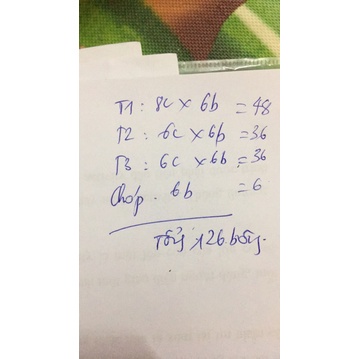 T1: 8c x 6b = 48
T2: 6c x 6b = 36
T3: 6c x 6b = 36
Chóp. 6b = 6
Tổng 126 bông.